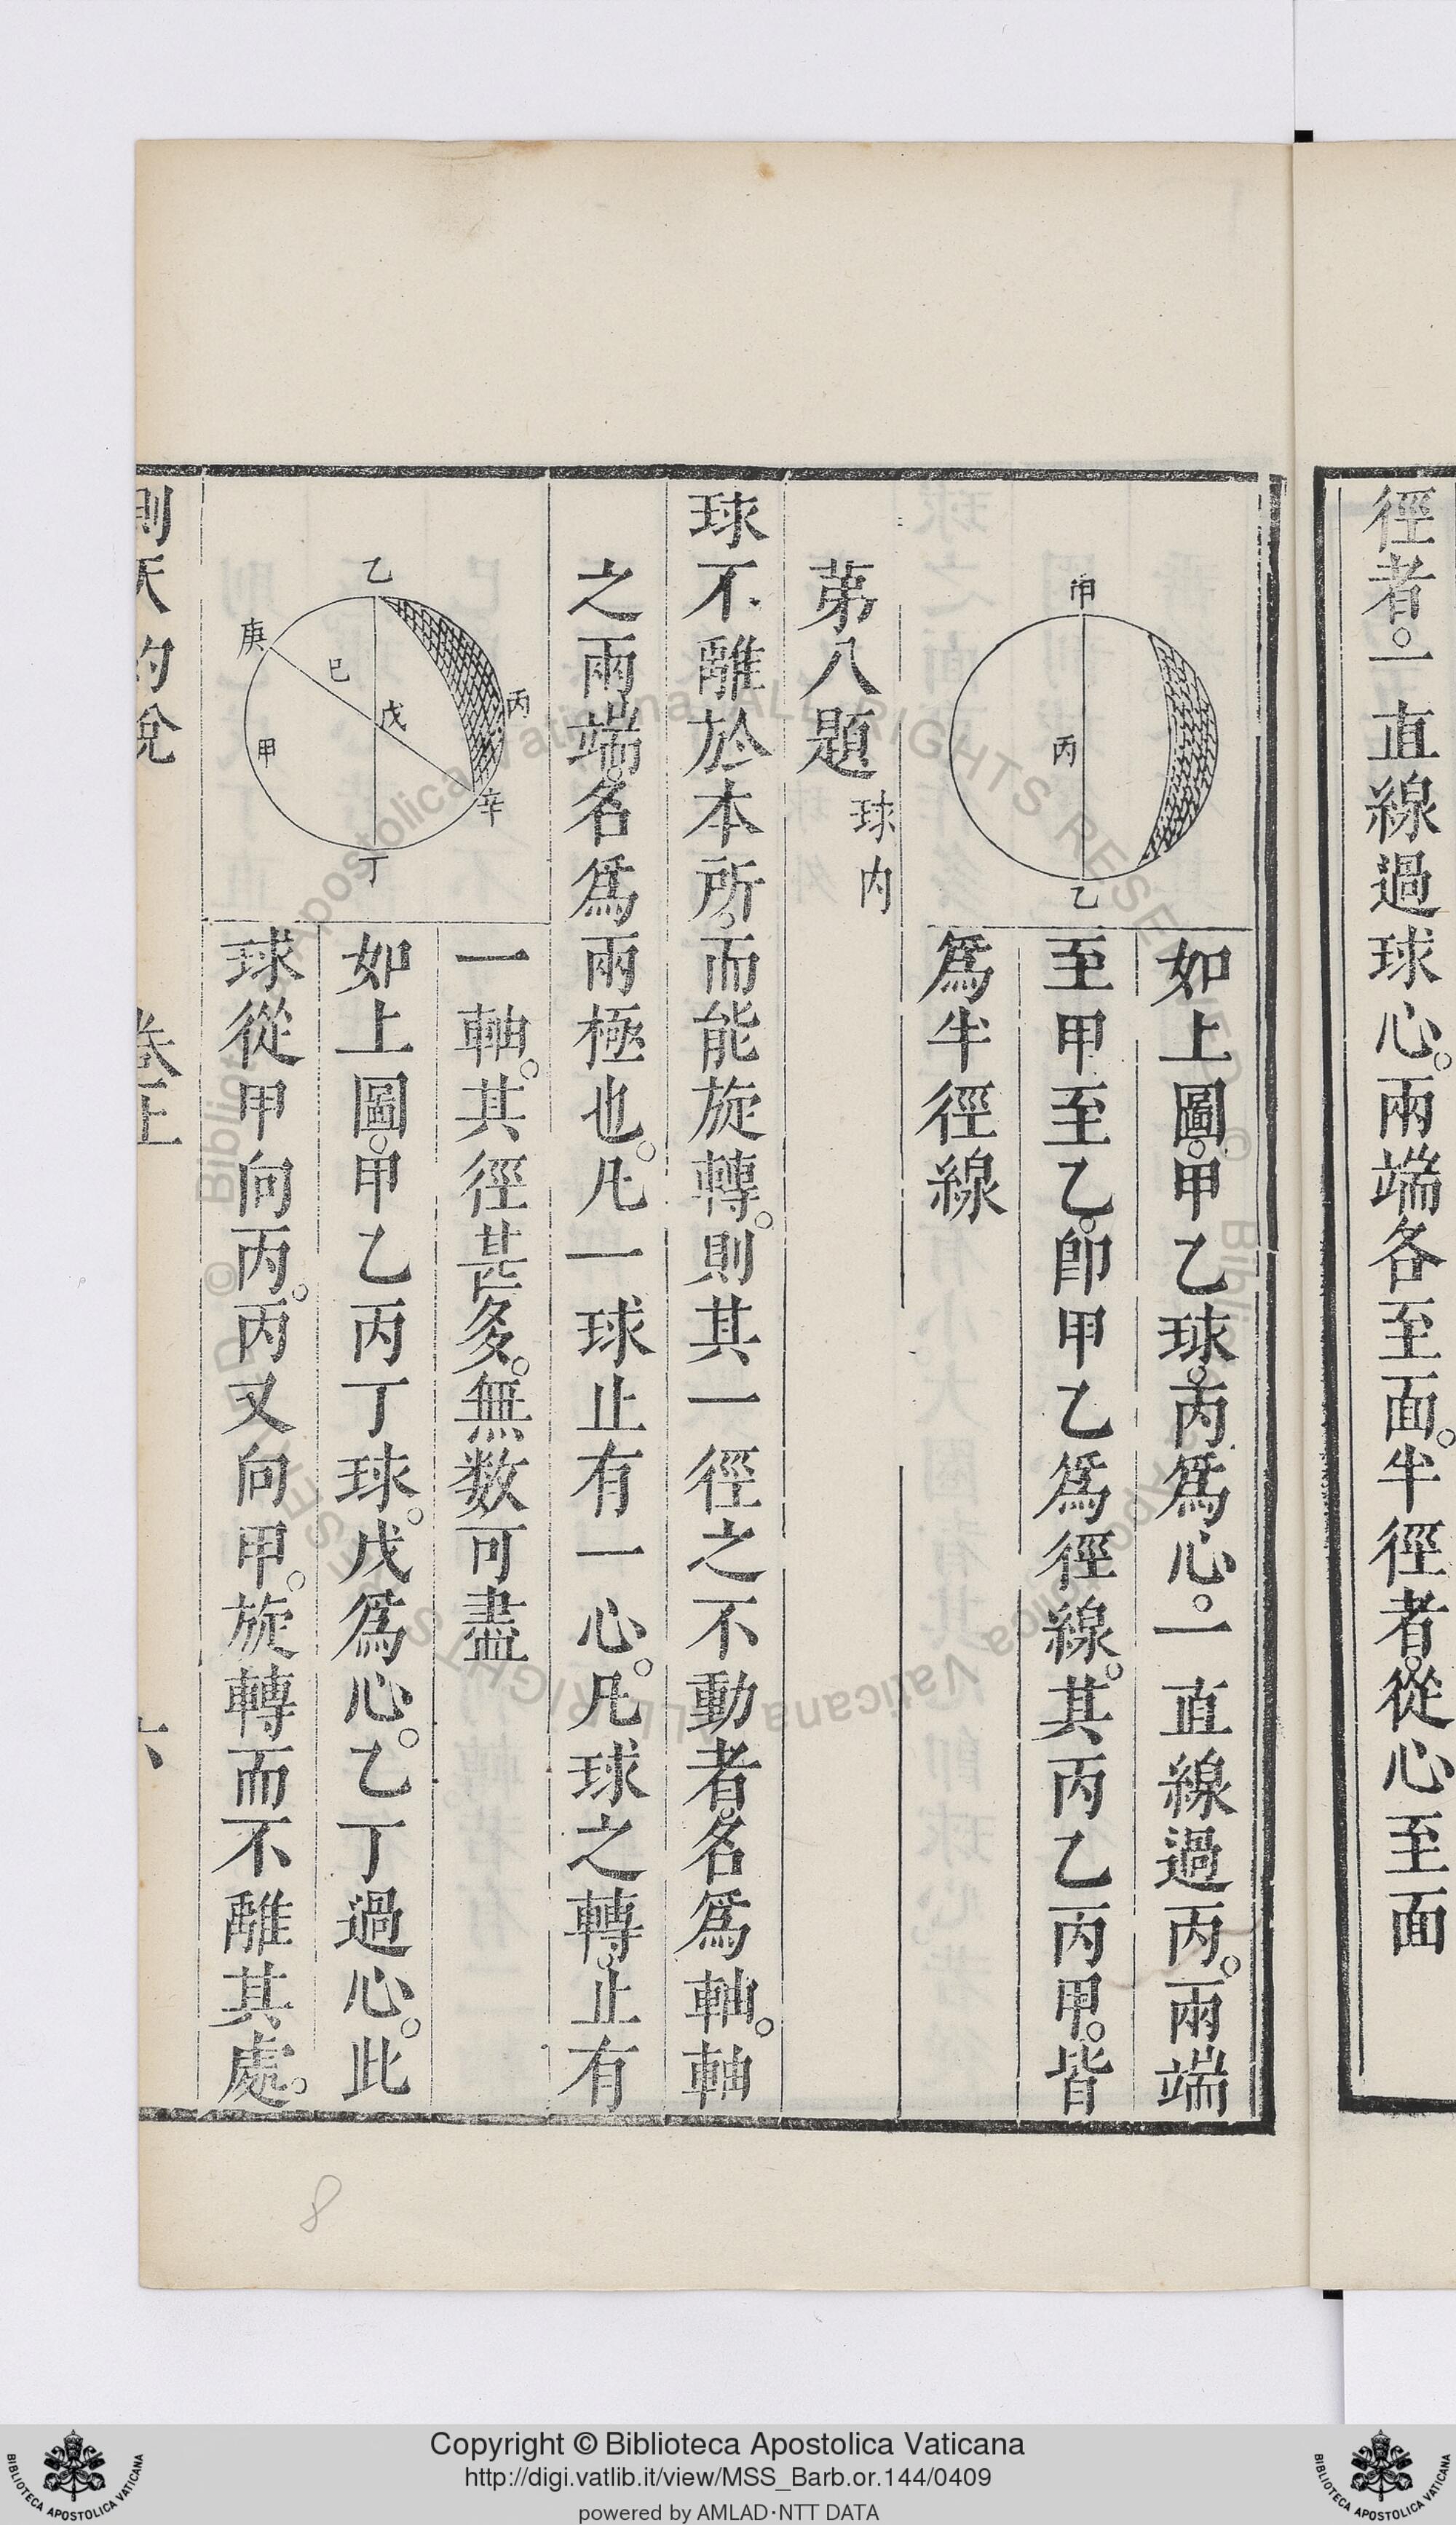 徑者。一直線過球心。兩端各至面。半徑者。從心至面
甲
丙
乙
如上圖。甲乙球。丙爲心。一直線過丙。兩端
至甲至乙。卽甲乙爲徑線。其丙乙丙甲。皆
爲半徑線
第八題 球内
球不離於本所。而能旋轉。則其一徑之不動者。名爲軸。軸
之兩端。名爲兩極也。凡一球止有一心。凡球之轉。止有
一軸。其徑甚多。無数可盡
乙
庚
己
丙
戊
甲
辛
丁
如上圖。甲乙丙丁球。戊爲心。乙丁過心。此
球從甲向丙。丙又向甲。旋轉而不離其處。
測天約說 卷上 六
8
Biblioteca Apostolica Vaticana ALL RIGHTS RESERVED ©
Copyright © Biblioteca Apostolica Vaticana
http://digi.vatlib.it/view/MSS_Barb.or.144/0409
powered by AMLAD·NTT DATA
BIBLIOTECA APOSTOLICA VATICANA
BIBLIOTECA APOSTOLICA VATICANA